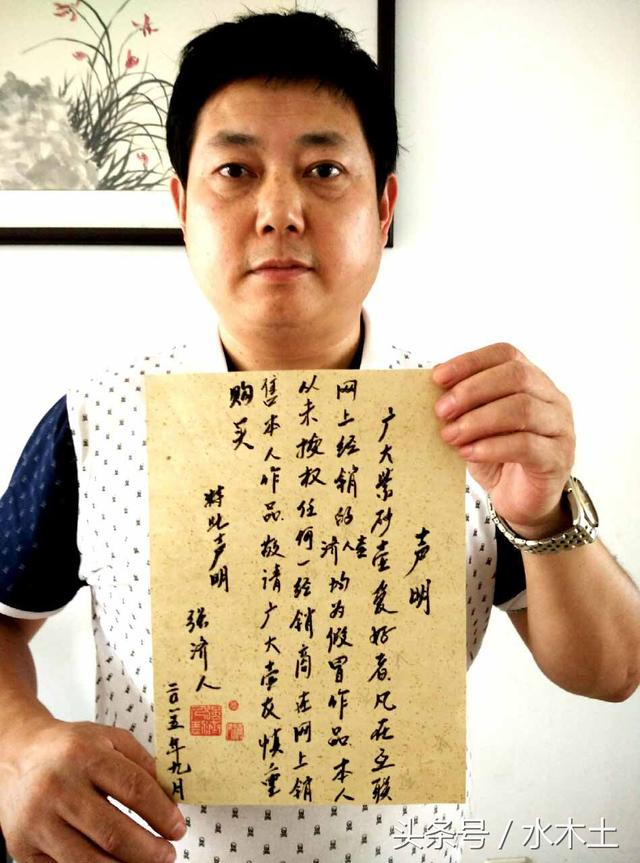 声明
广大紫砂壶爱好者凡在互联
网上经销的济人壶均为假冒作品本人
从未授权任何一经销商在网上销
售本人作品敬请广大壶友慎重
购买
特此声明
张济人
二〇一五年九月
头条号 / 水木土